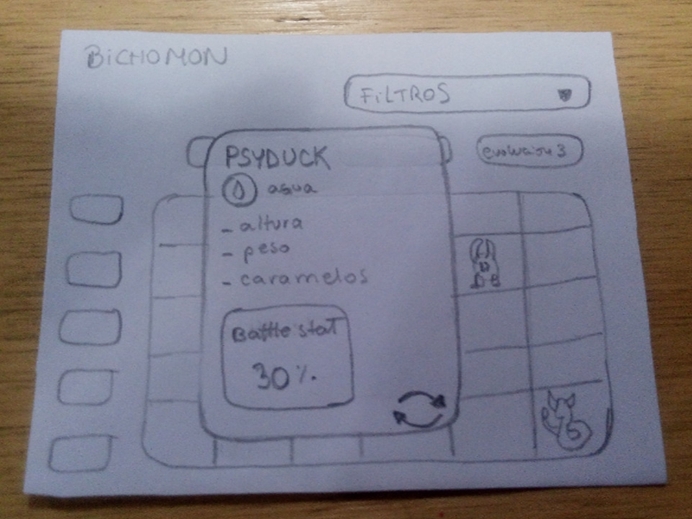 BICHOMON
FILTROS
evolucion 3
PSYDUCK
agua
- altura
- peso
- caramelos
Battle stat
30%